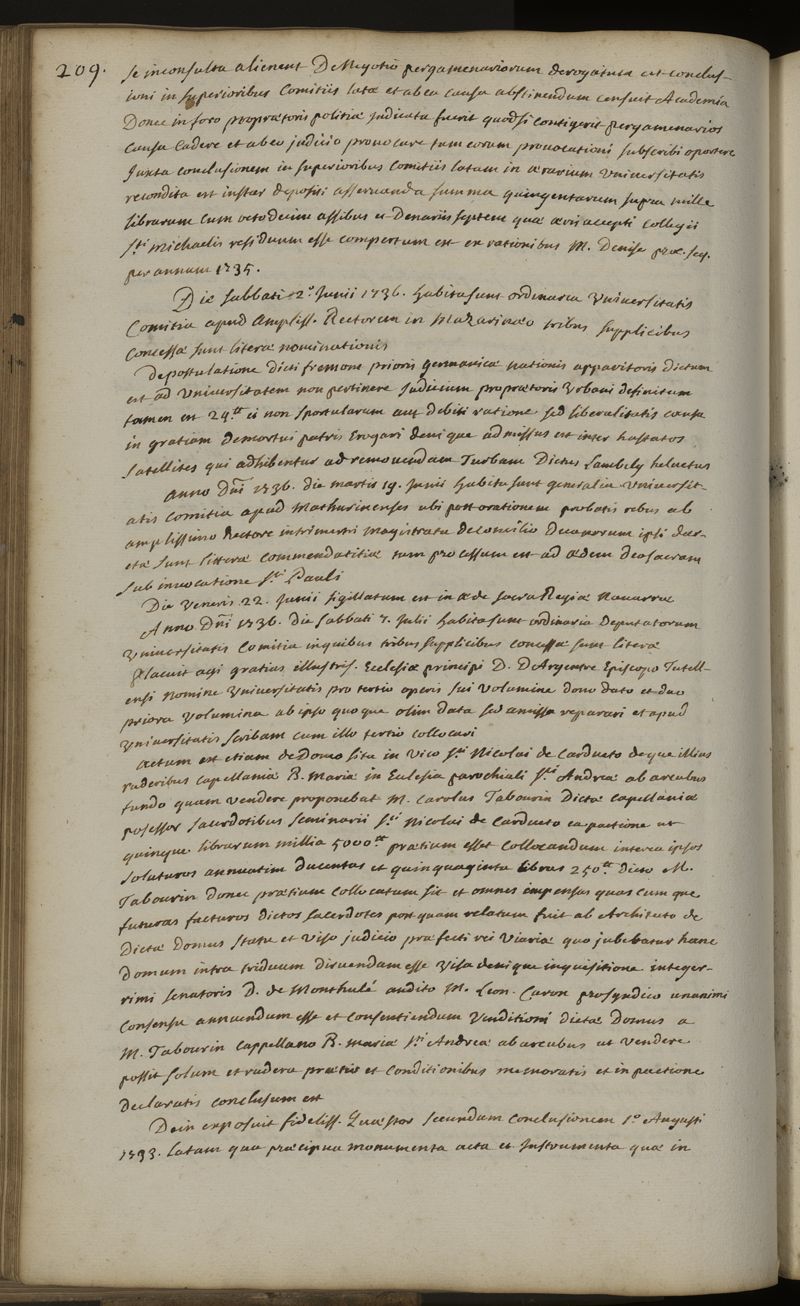 209. se inconsulta alienent De Negotio pergamenariorum derogatum est conclus-
ioni in superioribus Comitiis lata et ab ea causa abstinendum censuit Academia
Donec in foro propraetoris politiae judicata fuerit quod si contigerit pergamenarios
causa Cadere et ab eo judicio provocare tum eorum provocationi subscribi oportere
Juxta conclusionem in superioribus Comitiis latam in aerarium Universitatis
recondita est instar depositi asservanda summa quingentarum supra mille
librarum cum octodecim assibus et Denariis septem quae aeris accepti Collegii
Sti Michaelis residuum esse compertum est ex rationibus M. Denise proc. seq.
per annum 1735.
Die Sabbati 2° Junii 1736. habita sunt ordinaria Universitatis
Comitia apud Ampliss. Rectorem in Mazarinaeo tribus supplicibus
Concessae sunt literae nominationis
De postulatione dicti fremont prioris germanicae nationis apparitoris dictum
est ad Universitatem non pertinere Judicium propraetoris Urbani definitum
tamen est 24tt ei non sportularum aut debiti ratione sed liberalitatis causa
in gratiam demortui patris Erogari denique admissus est inter hastatos
satellites qui adhibentur ad removendam Turbam Dictus Lambely helvetus
Anno Dni 1736. die martis 19. Junii habita sunt generalia Universit-
atis Comitia apud Mathurinenses ubi post orationem probatis rebus ab
amplissimo Rectore intrimestri magistratu de Consilio Decanorum ipsi decr-
etae sunt litterae commendatitiae tum processum est ad aedem deo sacram
sub invocatione Sti Pauli
Die Veneris 22. Junii sigillatum est in aede sacra Regiae Navarrae
Anno Dni 1736. die sabbati 7. Julii habita sunt ordinaria Deputatorum
Universitatis Comitia in quibus tribus supplicibus concessae sunt literae
Placuit agi gratias illustris. Ecclesiae principi D. D'Argentre Episcopo Tutell-
ensi nomine Universitatis pro tertio operis sui Volumine dono dato et duo
priora Volumina ab ipso quoque olim data sed amissa reparari et apud
Universitatis scribam cum illo tertio collocari
Actum est etiam de Domo sita in Vico Sti Nicolai de Cardueto deque illius
ruderibus capellania B. Maria in Ecclesia parochiali Sti Andreae ab arcubus
fundo quam vendere proponebat M. Carolus Tabourin Dictae capellaniae
possessor sacerdotibus seminarii Sti Nicolai de Cardueto ea pactione ut
quinque librarum millia 5000tt pretium esset collocandum interea ipsos
soluturos annuatim ducentas et quinquaginta libras 250tt dicto M.
Tabourin donec pretium collocatum sit et omnes impensas quascumque
futuras facturos dictos sacerdotes postquam relatum fuit ab Architecto de
Dictae Domus statu et viso judicio praefecti rei Viariae quo jubebatur hanc
domum intra triduum diruendam esse Visa denique inquisitione integer-
rimi senatoris D. de Monthulé audito M. Leon. Caron prosyndico unanimi
consensu annuendum esse et consentiendum venditioni dictae Domus a
M. Tabourin Cappellano B. Mariae Sti Andreae ab arcubus ut vendere
possit solum et rudera pretio et conditionibus memoratis et in pactione
declaratis conclusum est
Dein exposuit fideliss. Quaestor secundum conclusionem 1° Augusti
1733. Latam qua praecipua monumenta acta et Instrumenta quae in